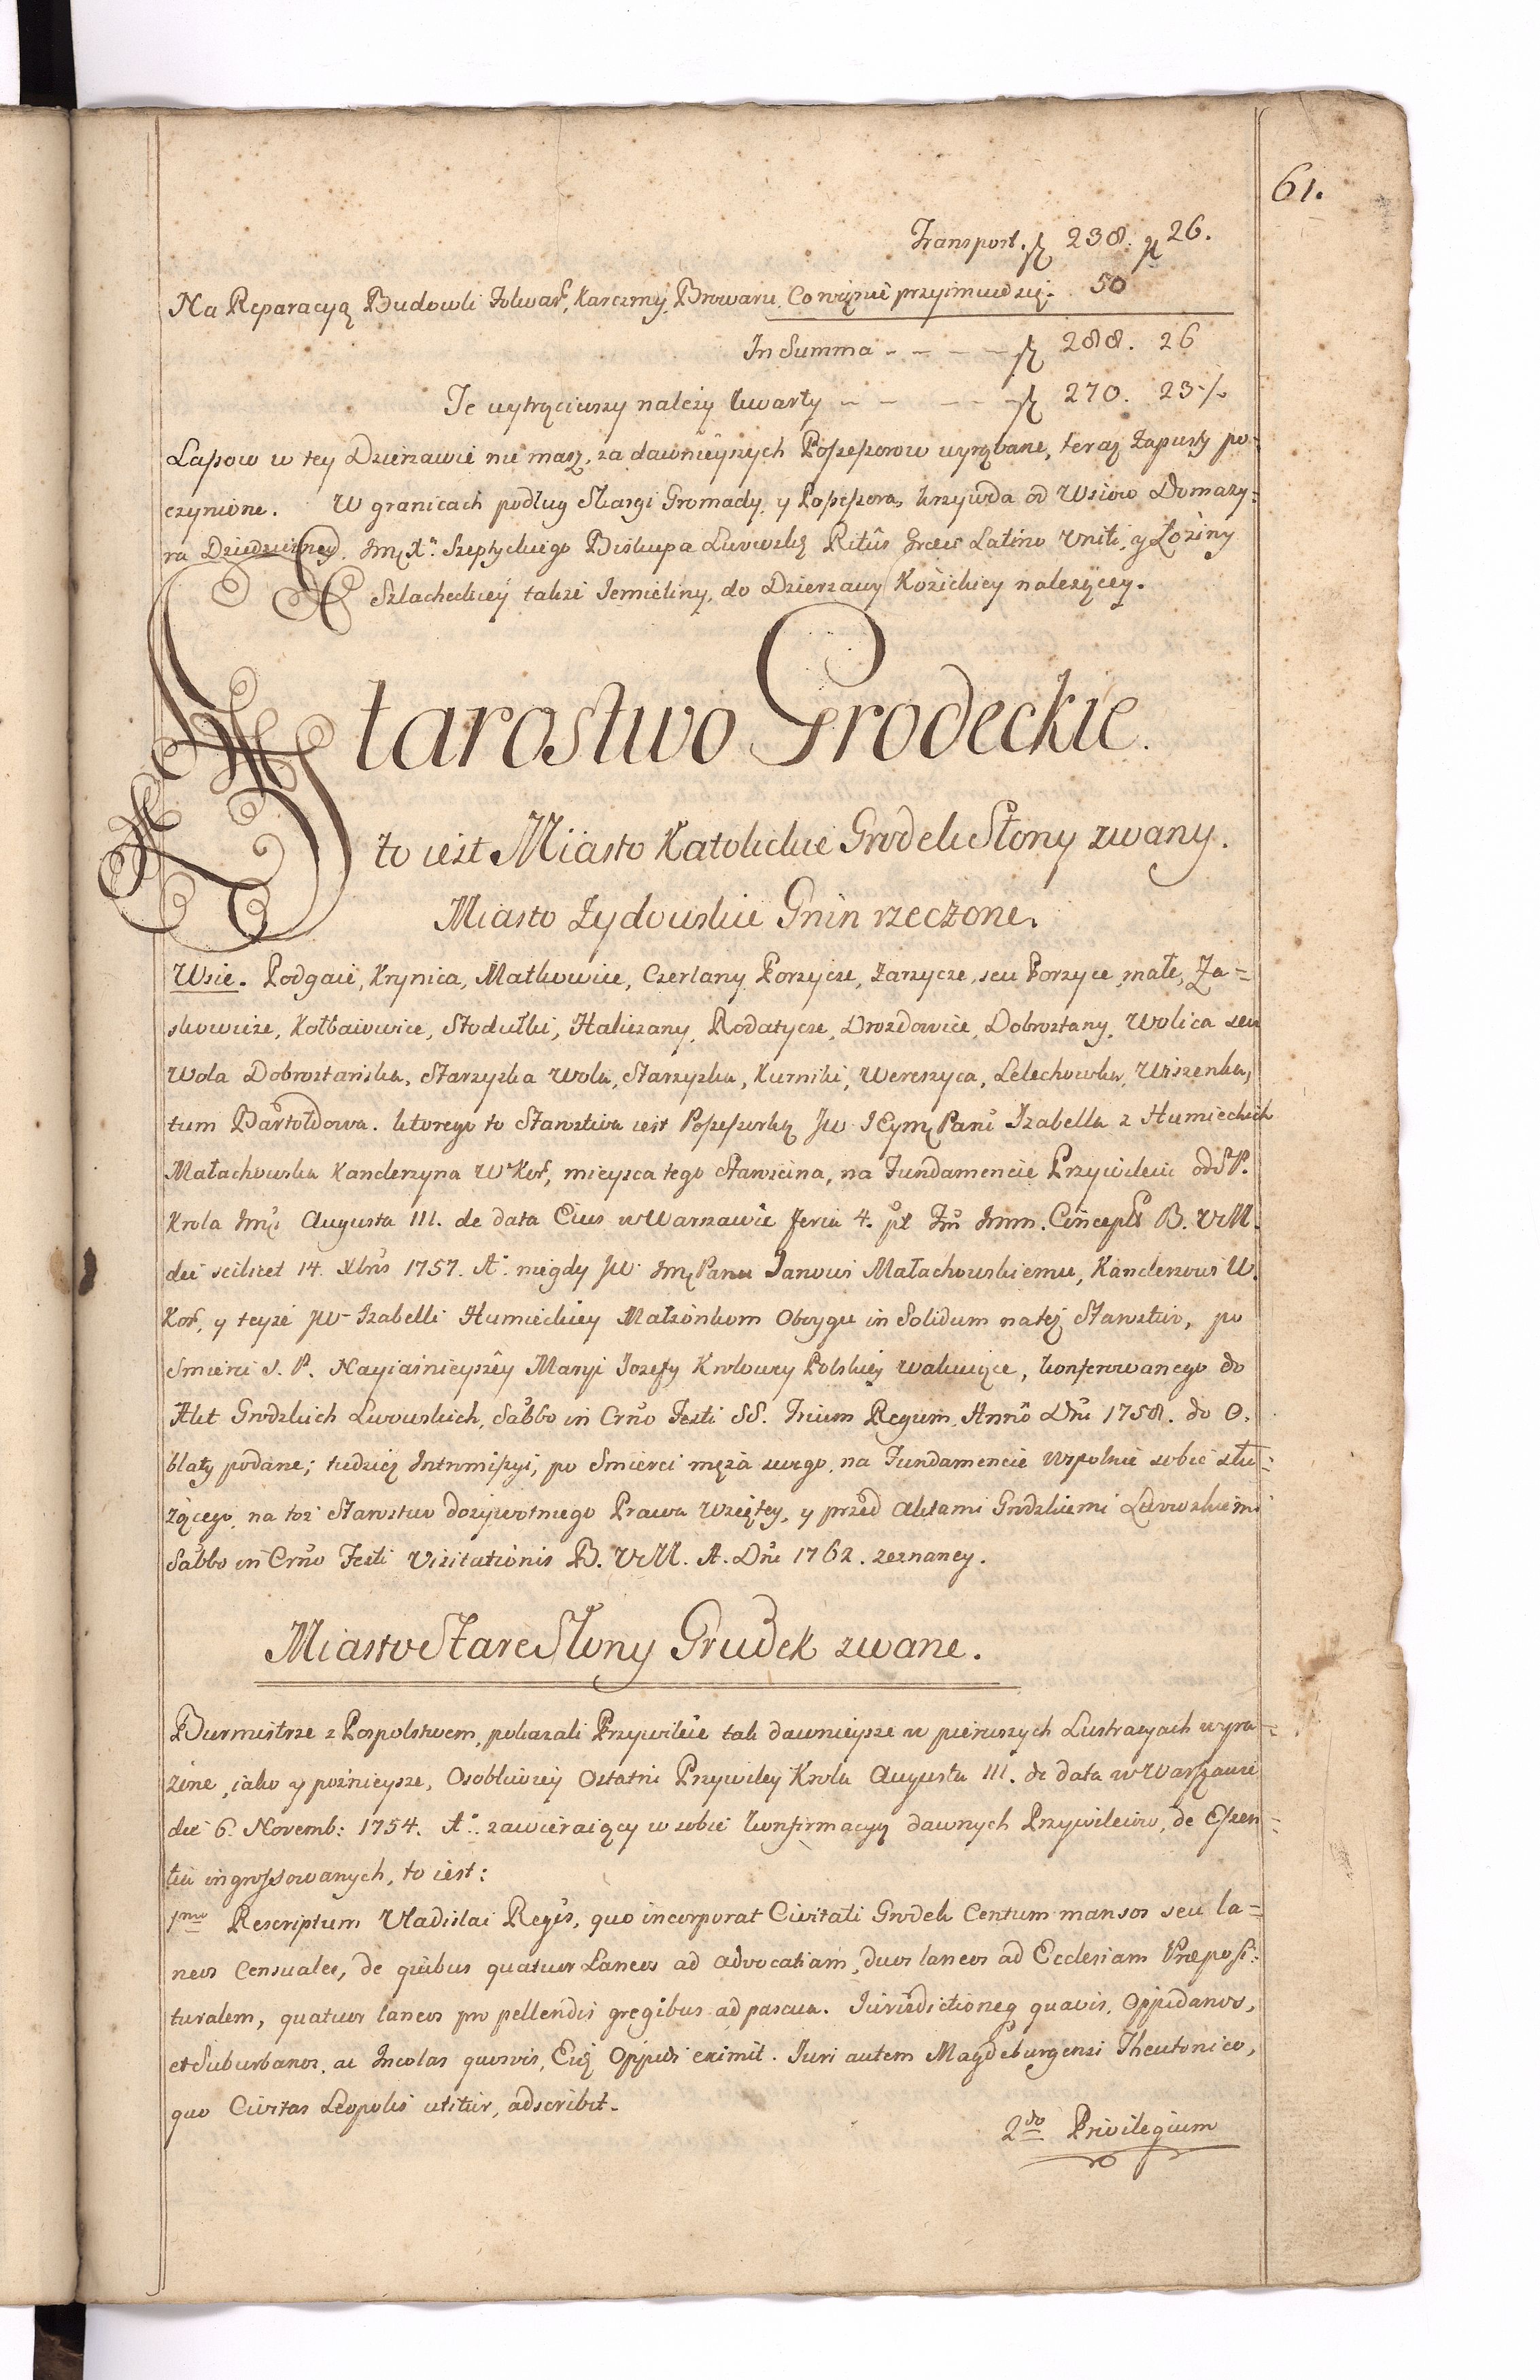 61.
Transport. zł 238. gr 26.
Na Reparacyą Budowli Folwar, Karczmy, Browaru, Corocznie przyimuie się. 50
In Summa - - - - zł 288. 26
Te wytrąciwszy należy kwarty - - - - zł 270. 23
Lasow w tey Dzierzawie nie masz, za dawnieyszych Possessorow wyrąbane, teraz Zapusty po=
czynione. W granicach podług Skargi Gromady, y Possessora, krzywda od Wsiow Domaży=
ra Dziedziczney Szeptyckiego Biskupa Lwowskę Ritus Graeci Latino Uniti, y Łoziny
Szlacheckiey także Jemieliny, do Dzierzawy Kozickiey należącey.
Starostwo Grodeckie.
to iest Miasto Katolickie Grodek Słony zwany.
Miasto Zydowskie Gnin rzeczone.
Wsie. Podgaie, Krynica, Matkowice, Czerlany Porzycze, Zarzycze, seu Porzyce małe, Za=
skowicze, Kołbaiowice, Stodułki, Haliczany, Rodatycze, Drozdowice, Dobrostany, Wolica seu
Wola Dobrostańska, Starzyska Wola, Starzyska, Kurniki, Wereszyca, Lelechowka, Wiszenka,
tum Bartołdowa. ktorego to Starostwa iest Possessorką JW JEymę Pani Izabella z Humieckich
Małachowska Kanclerzyna W Kor, mieysca tego Starościna, na Fundamencie Przywileiu od S P.
Krola Jmći Augusta III. de data Eius w Warszawie feria 4. pt Fm Imm. Concept B. V M.
die scilicet 14. Xbris 1757. A. niegdy JW Jmę Panu Janowi Małachowskiemu, Kanclerzowi W.
Kor, y teyże JW Izabelli Humieckiey Małżonkom Oboygu in Solidum na też Starostwo, po
Smierci S. P. Nayiaśnieyszey Maryi Jozefy Krolowey Polskiey wakuiące, konferowanego do
Akt Grodzkich Lwowskich, Sabbo in Crno Festi SS. Trium Regum, Anno Dni 1758. do O=
blaty podane; tudzież Intromissyi, po Smierci męża swego, na Fundamencie Wspolnie sobie słu=
żącego, na toż Starostwo dożywotniego Prawa wziętey, y przed Aktami Grodzkiemi Lwowskiemi
Sabbo in Crno Festi Visitationis B. V M. A. Dni 1762. zeznaney.
Miasto Stare Słony Grudek zwane.
Burmistrze z Pospolstwem, pokazali Przywileie tak dawnieysze w pierwszych Lustracyach wyra=
żone, iako y poźnieysze, Osobliwiey Ostatni Przywiley Krola Augusta III. de data w Warszawie
die 6. Novemb: 1754. A. zawieraiący w sobie konfirmacyą dawnych Przywileiow, de Essen=
tia ingrossowanych, to iest:
1mo Rescriptum Vladislai Regis, quo incorporat Civitati Grodek Centum mansos seu la=
neos Censuales, de quibus quatuor Laneos ad advocatiam, duos laneos ad Ecclesiam Præposi=
turalem, quatuor laneos pro pellendis gregibus ad pascua. Iurisdictioneq quavis, Oppidanos,
et Suburbanos, ac Incolas quosvis, Eiq Oppidi eximit. Iuri autem Magdeburgensi Theutonico,
quo Civitas Leopolis utitur, adscribit.
2do Privilegium